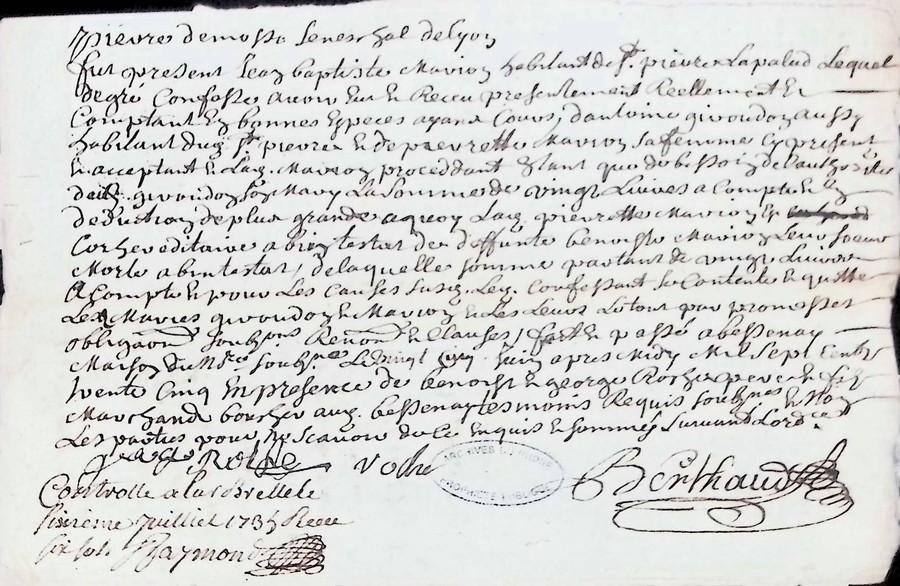 pierre demosso seneschal de Lyon
fut present Jean baptiste Marion habitant de St. pierre Lapalud Lequel
de gré Confesse avoir Eu et Receu presentement Reellement Et
Comptant En bonnes Especes ayant Cours, dantoine givoudon aussy
habitant dud. St. pierre et de pierrette Marion sa femme Cy present
et acceptant et Lad. Marion proceddant Etant que de besoin de lauthorite
dud. givoudon son Mary La somme de vingt Livres a Compte et en
deduction de plus grande a quoy Lad. pierrette Marion Est
Coheritiere abintestat de deffunte benoiste Marion Leur soeur
Morte abintestat, de laquelle somme partant de vingt Livres
a Compte et pour Les causes susd. Led. Confessant se Contente et quitte
Les Maries givoudon et Marion et Les Leurs Le tout par promesses
obligaon. soubson. Renonon. et Clauses, fait et passé a bessenay
Maison du Nore. soubsne. Le vingt juin apres Midy Mil sept Cents
trente Cinq En presence de benoist et george Roche pere et fils
Marchands boucher aud. bessenay tesmoins Requis soubsnes et Non
Les parties pour ne scavoir de ce Enquis et sommés suivant Lordce.
Roche Roche
ARCHIVES DU RHONE
PROPRIETE PUBLIQUE
Berthaud
Controlle a larBrelle le
sixieme Juilliet 1735 Receu
six sols Raymond